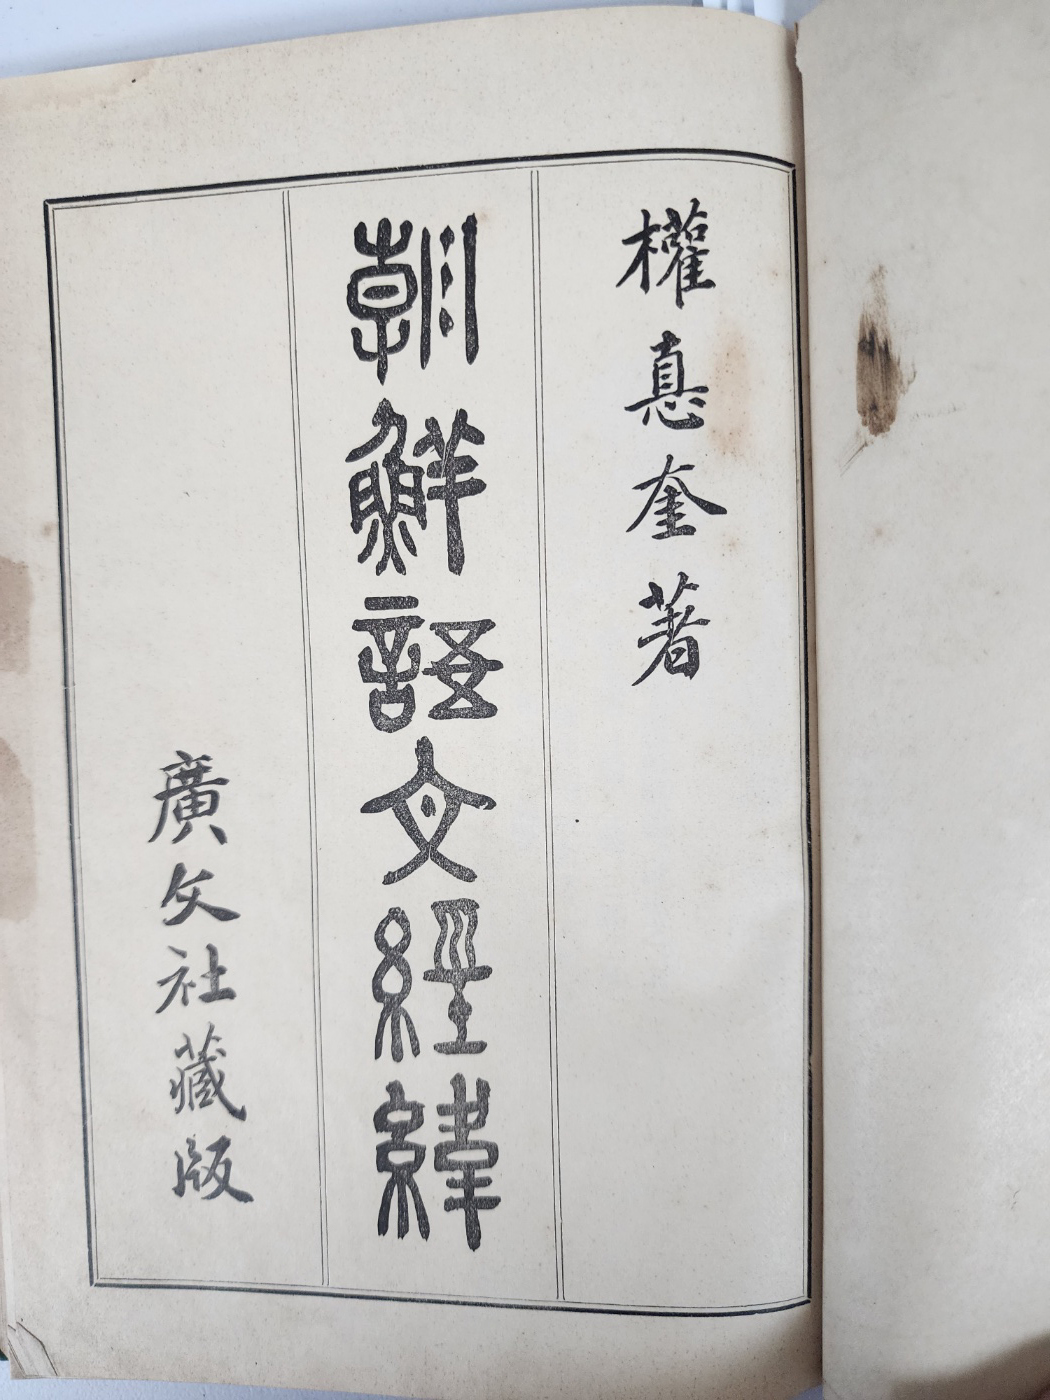 權悳奎著
朝鮮語文經緯
廣文社藏版